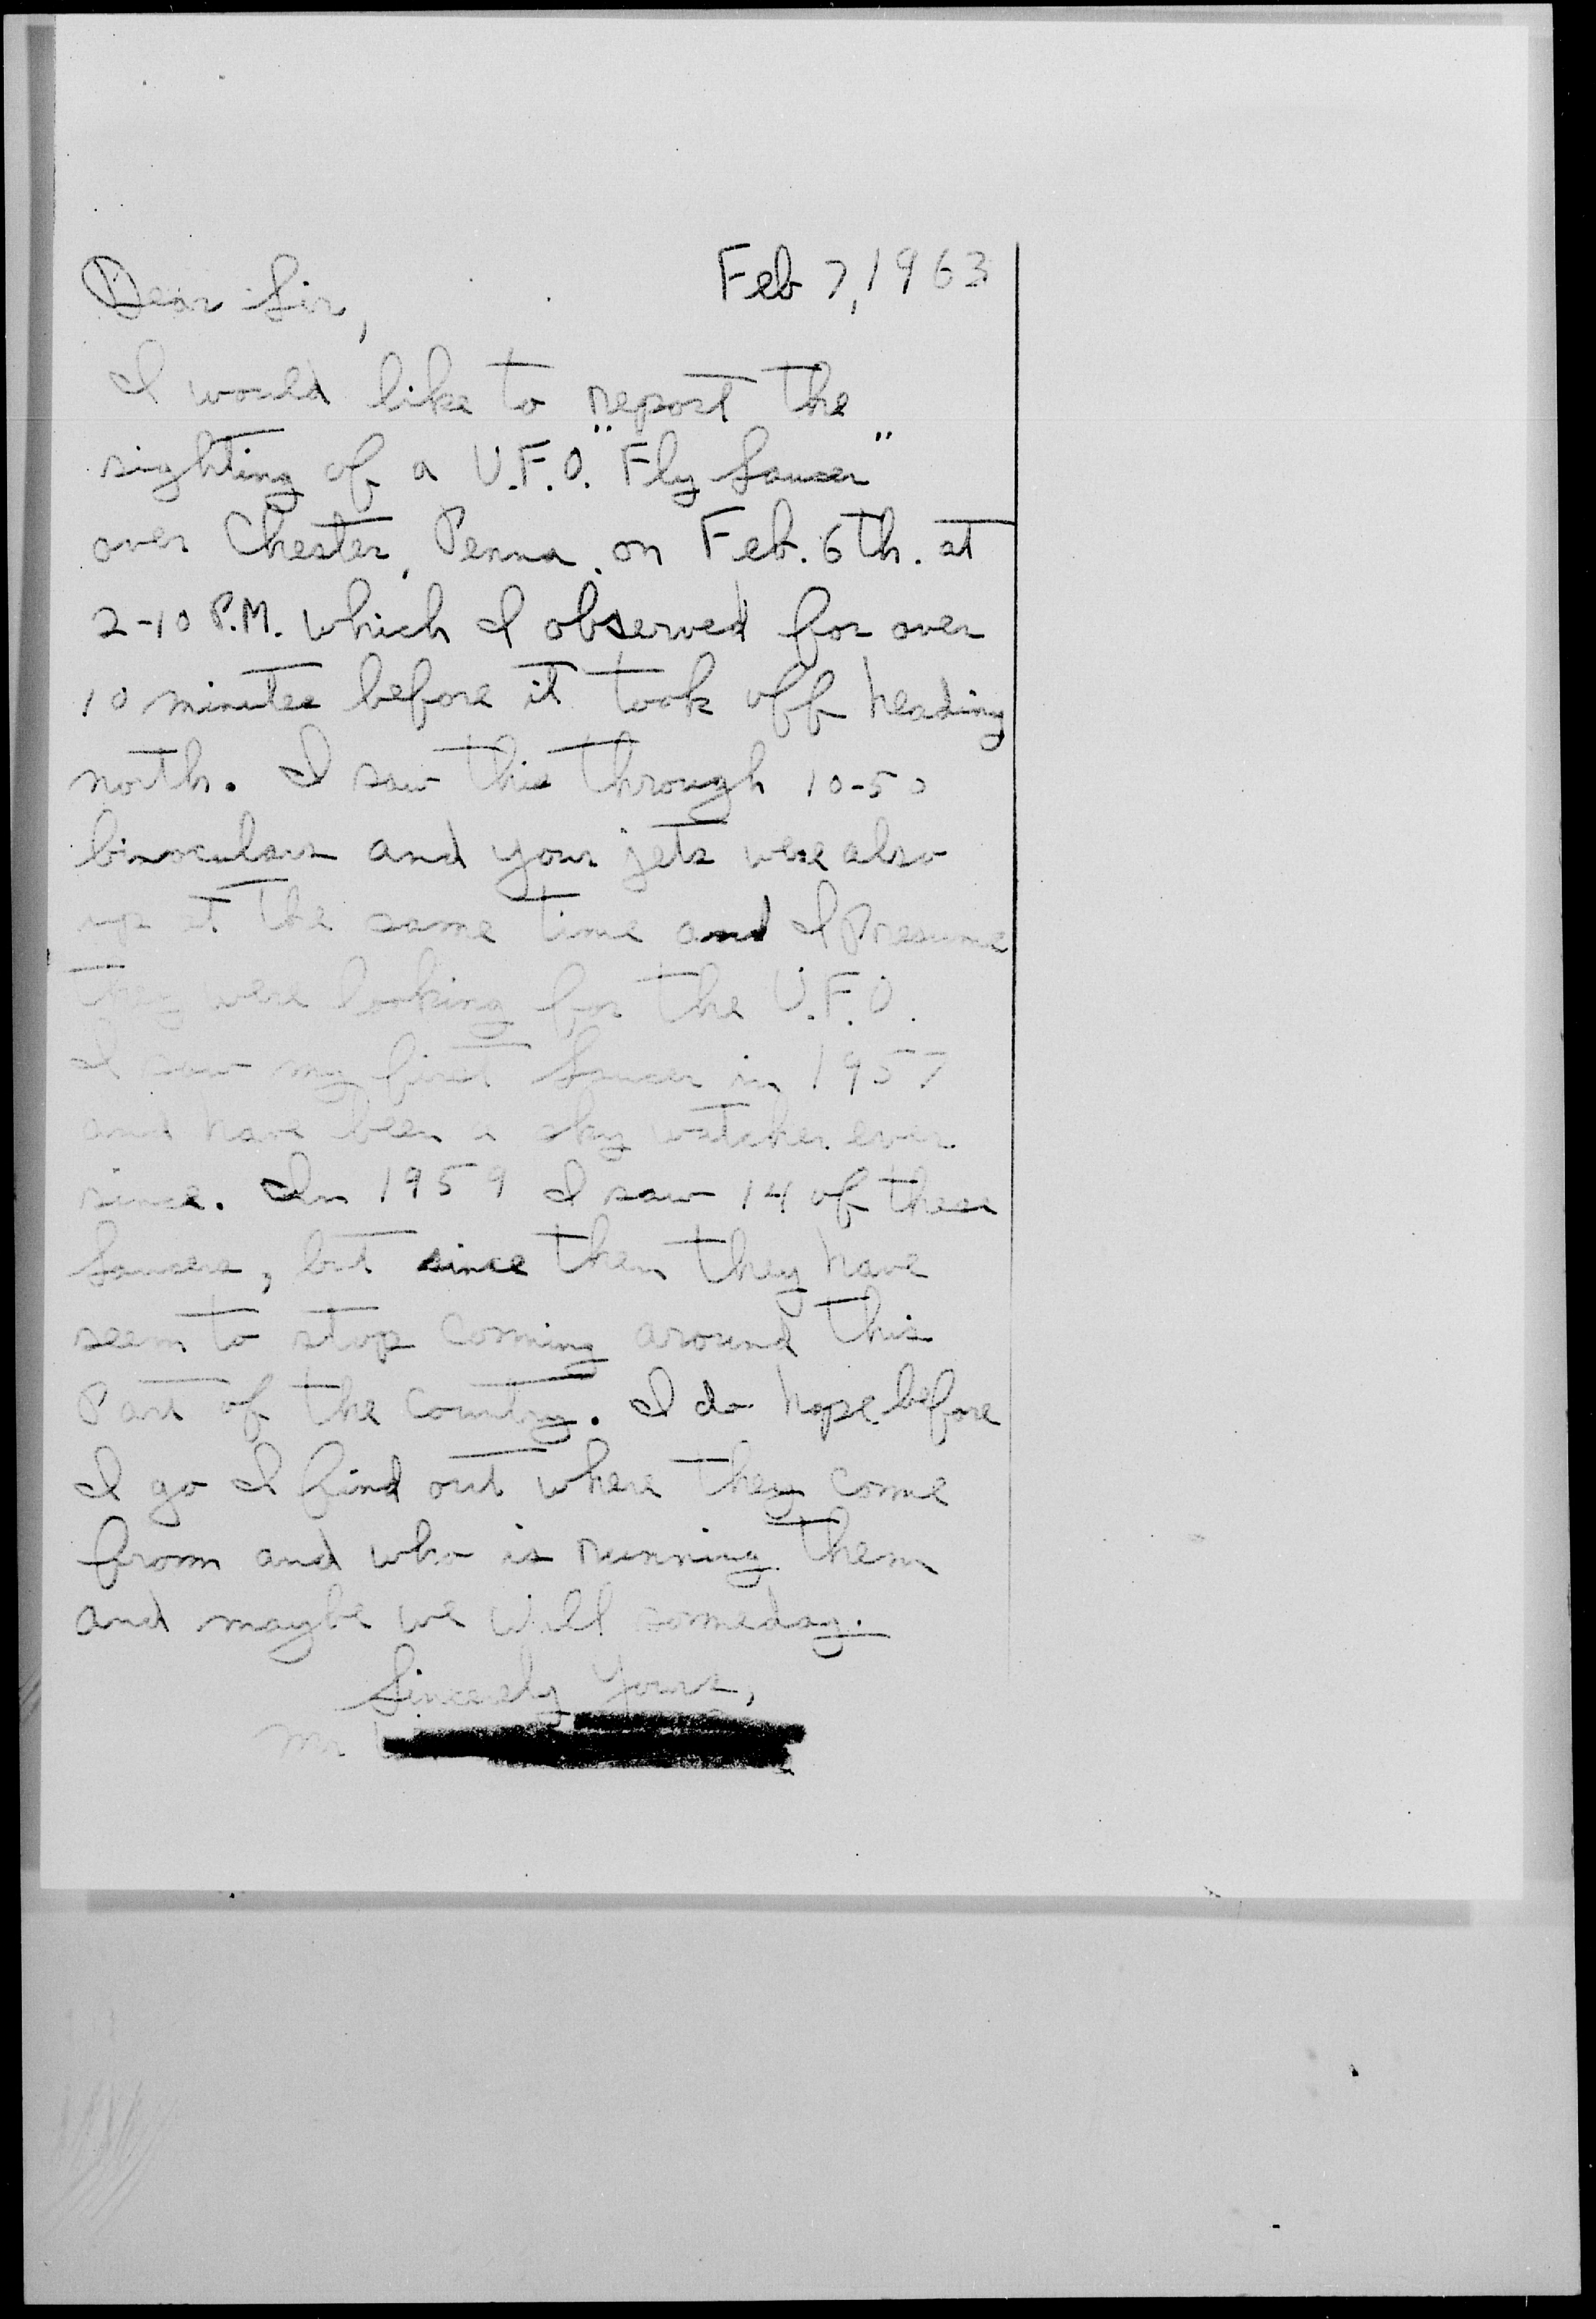 Feb 7, 1963
Dear Sir,
I would like to report the
sighting of a U.F.O. "Fly Saucer"
over Chester, Penna. on Feb. 6th. at
2-10 P.M. which I observed for over
10 minutes before it took off heading
north. I saw this through 10-50
binoculars and your jets were also
up at the same time and I Presume
they were looking for the U.F.O.
I saw my first Saucer in 1957
and have been a sky watcher ever
since. In 1959 I saw 14 of these
Saucers, but since then they have
seem to stop coming around this
Part of the country. I do hope before
I go I find out where they come
from and who is running them
and maybe we will someday.
Sincerely Yours,
Mr